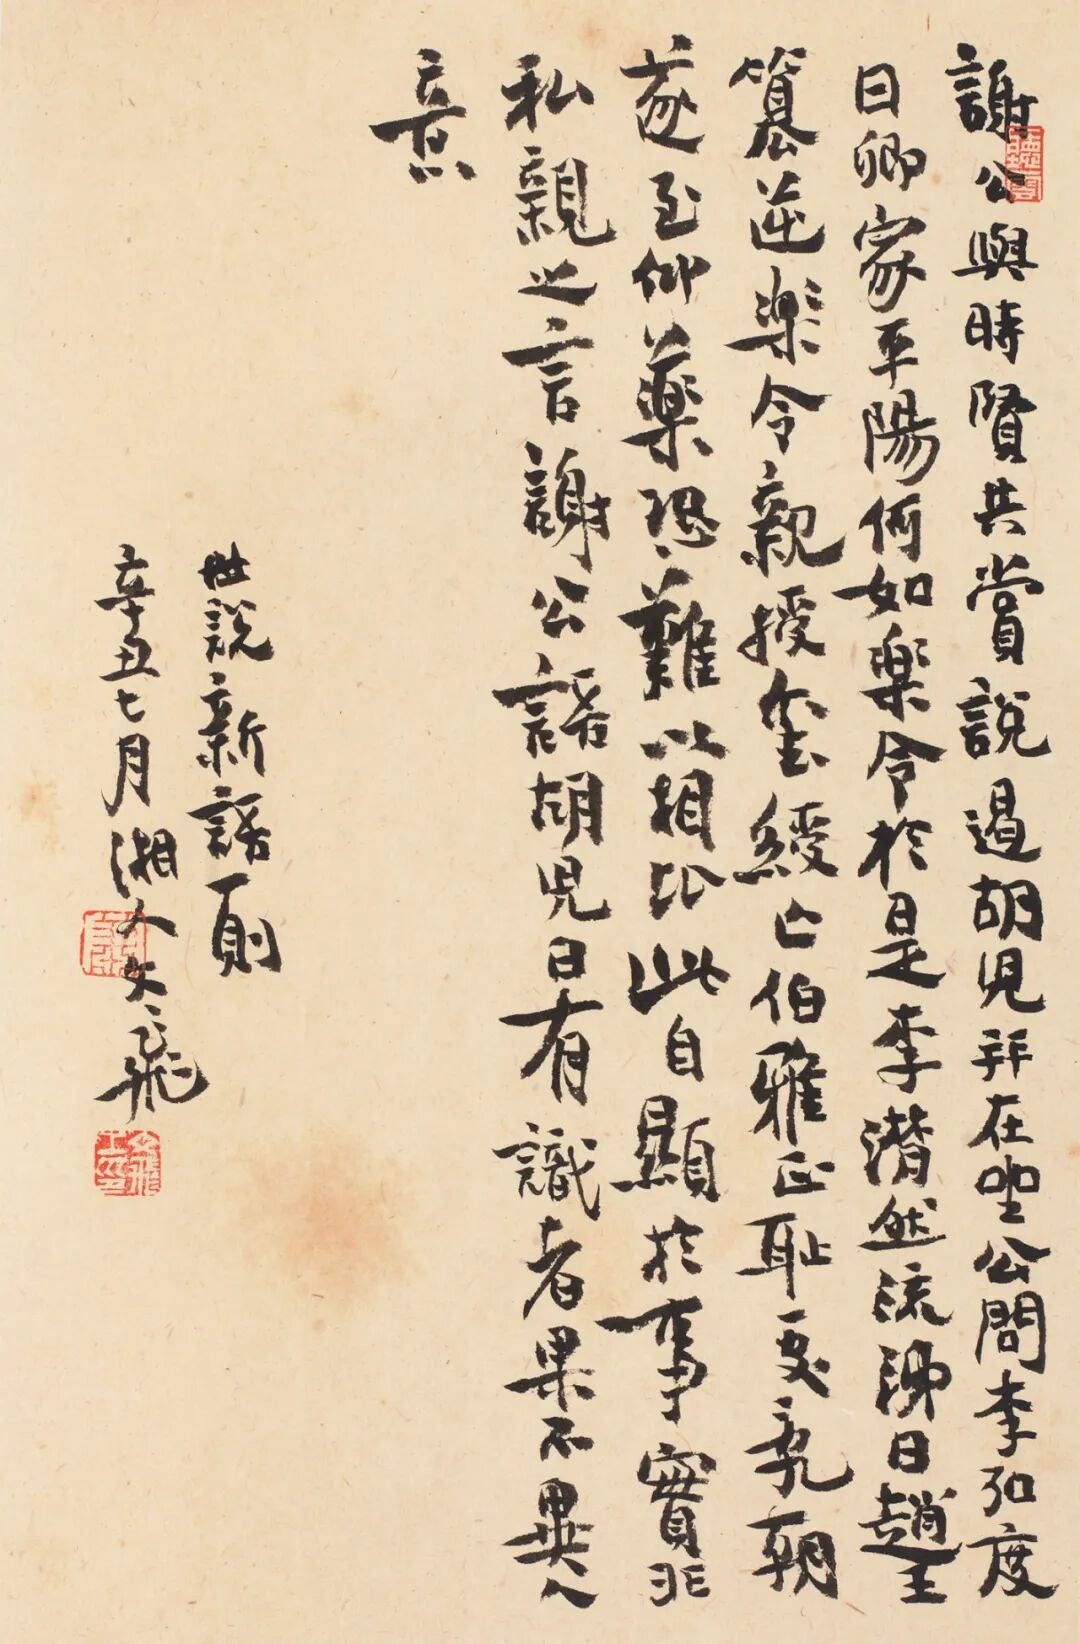 謝公與時賢共賞說遏胡兒並在坐公問李弘度
曰卿家平陽何如樂令於是李潸然流涕曰趙王
篡逆樂令親授璽綬亡伯雅正恥處亂朝
遂至仰藥恐難以相比此自顯於事實非
私親之言謝公語胡兒曰有識者果不異人
意
世說新語一則
辛丑七月湘人大飛